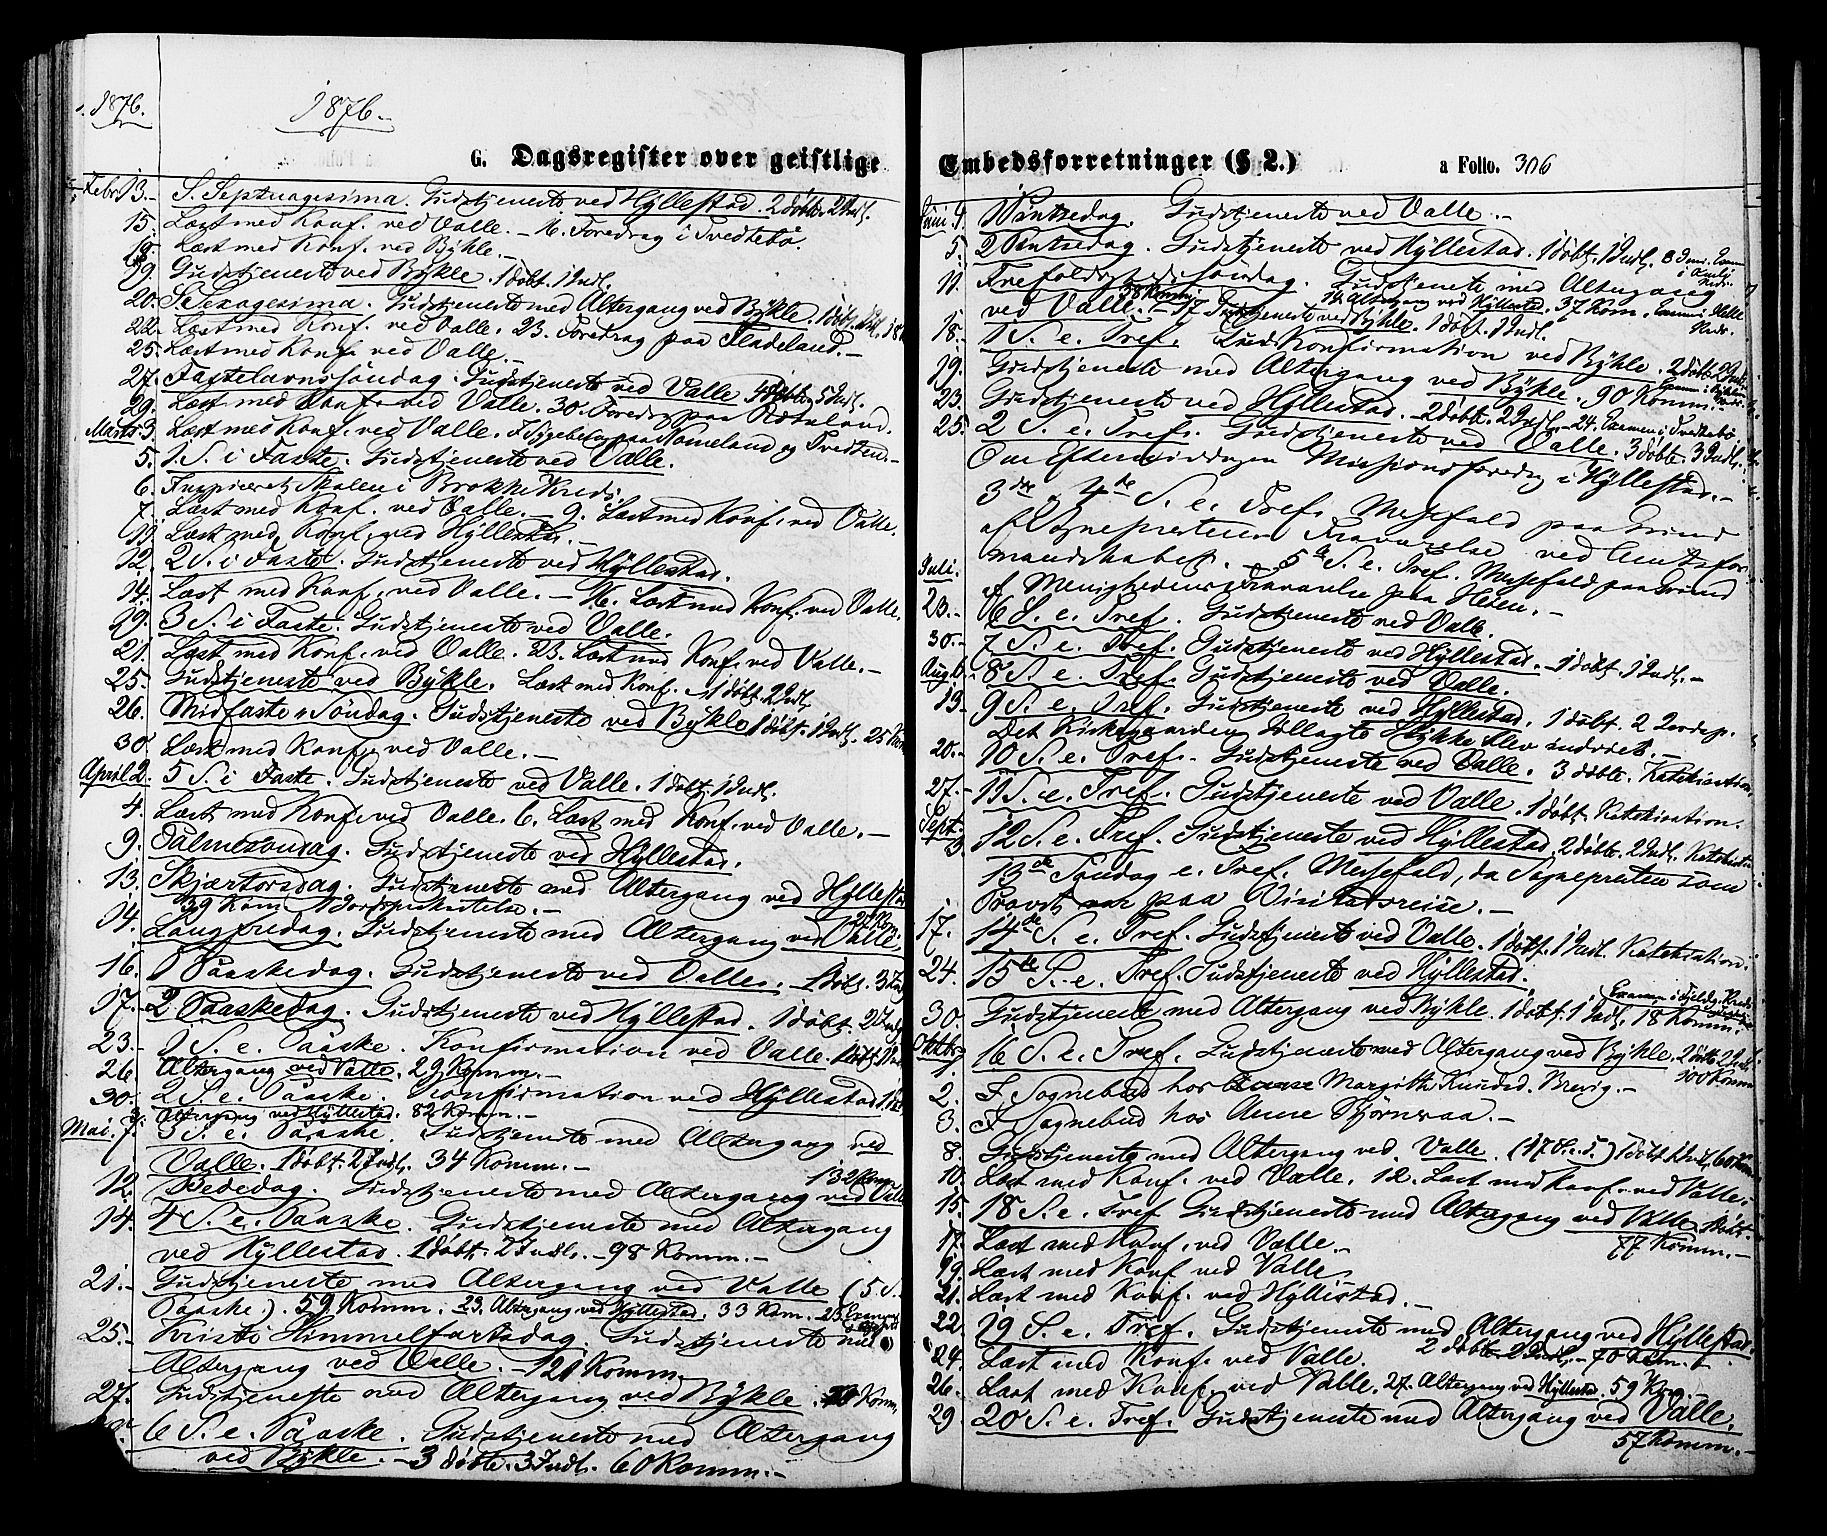 1876.
1876.
G. Dagsregister over geistlige
Febr. 13. S. Septuagesima. Gudstjeneste ved Hyllestad. 2 döbt. 2 Indl.
15. Læst med Konf. ved Valle. — 16. Foredrag i Tvedtebö.
18. Læst med Konf. ved Bykle. —
19. Gudstjeneste ved Bykle. 1 döbt. 1 Indl.
20. S. Sexagesima. Gudstjeneste med Altergang ved Bykle. 1 döbt. 1 Indl.
22. Læst med Konf. ved Valle. 23. Foredrag paa Fladeland. —
25. Læst med Konf. ved Valle. —
27. Fastelavnssöndag. Gudstjeneste ved Valle. 4 döbte. 5 Indl.
29. Læst med Konf. ved Valle. 30. Foredrag paa
Marts 3. Læst med Konf. ved Valle. F. Sygebesög paa Homeland og
5. 1 S. i Faste. Gudstjeneste ved Valle.
6. Inspiceret Skolen i Brokke Kreds.
7. Læst med Konf. ved Valle. — 9. Læst med Konf. ved Valle.
11. Læst med Konf. ved Hyllestad. —
12. 2 S. i Faste. Gudstjeneste ved Hyllestad.
14. Læst med Konf. ved Valle. — 16. Læst med Konf. ved Valle.
19. 3 S. i Faste. Gudstjeneste ved Valle.
21. Læst med Konf. ved Valle. 23. Læst med Konf. ved Valle. —
25. Gudstjeneste ved Bykle. Læst med Konf. 1 döbt. 2 Indl.
26. Midfaste Söndag. Gudstjeneste ved Bykle 1 döbt. 1 Indl. 25
30. Læst med Konf. ved Valle. —
April 2. 5 S. i Faste. Gudstjeneste ved Valle. 1 döbt. 1 Indl.
4. Læst med Konf. ved Valle. 6. Læst med Konf. ved Valle. —
9. Palmesöndag. Gudstjeneste ved Hyllestad.
13. Skjærtorsdag. Gudstjeneste med Altergang ved Hyllestad
39 Kom. 1 —
14. Langfredag. Gudstjeneste med Altergang ved Valle.
16. 1 Paaskedag. Gudstjeneste ved Valle. — 1 döbt. 3 Indl
17. 2 Paaskedag. Gudstjeneste ved Hyllestad. 1 döbt. 2 Indl
23. 1 S. e. Paaske. Konfirmation ved Valle. 1 döbt.
26. Altergang ved Valle. 29 Komm. —
30. 2 S. e. Paaske. Konfirmation ved Hyllestad.
3. Altergang ved Hyllestad. 82 Komm. —
Mai. 7. 3 S. e. Paaske. Gudstjeneste med Altergang ved
Valle. 1 döbt. 2 Indl. 34 Komm. —
132 Kom
12. Bededag. Gudstjeneste med Altergang ved Valle
14. 4 S. e. Paaske. Gudstjeneste med Altergang
ved Hyllestad. 1 döbt. 2 Indl. — 98 Komm. —
21. — Gudstjeneste med Altergang ved Valle (5 S.
Paaske). 59 Komm. 23. Altergang ved Hyllestad. 33 Kom. 25 Examen
25. Kristi Himmelfartsdag. Gudstjeneste med
Altergang ved Valle. — 121 Komm.
27. Gudstjeneste med Altergang ved Bykle. Komm.
6 S. e. Paaske. Gudstjeneste med Altergang
ved Bykle. — 3 döbte. 3 Indl. 60 Komm. —
Embedsforretninger (§ 2.)
a Folio. 306
Juni 4. 1 Pintsedag. Gudstjeneste ved Valle. —
5. 2 Pintsedag. Gudstjeneste ved Hyllestad. 1 döbt. 1 Indl.
11. Trefoldighedssöndag. Gudstjeneste med Altergang
ved Valle. 58 Komm. 14. Altergang ved Hyllestad. 37 Kom. Examen i Valle Kreds.
— 17 Gudstjeneste ved Bykle. 1 döbt. 1 Indl.
18. 1 S. e. Tref. Konfirmation ved Bykle. 2 döbte. 2 Indl.
19. Gudstjeneste med Altergang ved Bykle. 90 Komm. —
23. Gudstjeneste ved Hyllestad. — 2 döbte. 2 Indl. — 24. Examen i Tvedtebö
25. 2 S. e. Tref. Gudstjeneste ved Valle. 3 döbte. 3 Indl.
Om Eftermiddagen Missionsforedrag i Hyllestad. —
3die & 4de S. e. Tref. Messefald paa Grund
af Sognepræstens Fraværelse ved Amtsfor
mandskabet. — 5te S. e. Tref. Messefald paa Grund
Juli. af Menighedens Fraværelse paa Heien. —
23. — 6 S. e. Tref. Gudstjeneste ved Valle.
30. — 7 S. e. Tref. Gudstjeneste ved Hyllestad. — 1 döbt. 1 Indl. —
Aug. 6. 8 S. e. Tref. Gudstjeneste ved Valle.
13. — 9 S. e. Tref. Gudstjeneste ved Hyllestad. 1 döbt. 2 Jordsp.
Det Kirkegaarden tillagte Stykke blev indviet. —
20. — 10 S. e. Tref. Gudstjeneste ved Valle. 3 döbte. Katekisation.
27. — 11 S. e. Tref. Gudstjeneste ved Valle. 1 döbt. Katekisation.
Sept. 3 12 S. e. Tref. Gudstjeneste ved Hyllestad. 2 döbte. 2 Indl.
13de Söndag e. Tref. Messefald, da Sognepræsten som
Provst var paa Visitadsreise. —
17. 14de S. e. Tref. Gudstjeneste ved Valle. 1 döbt. 1 Indl. Katekisation.
24. 15de S. e. Tref. Gudstjeneste ved Hyllestad.
30. Gudstjeneste med Altergang ved Bykle. 1 döbt. 1 Indl. 18 Komm.
Oktbr. 1. 16 S. e. Tref. Gudstjeneste med Altergang ved Bykle. 2 döbte 2 Indl.
100 Komm
2. I Sognebud hos Margith Knudsd. Brevig. —
3. I Sognebud hos Anne Bjørnraa. —
8. Gudstjeneste med Altergang ved Valle. (17 S. e. T.) 1 döbt 1 Indl. 60 Komm
10. Læst med Konf. ved Valle. 12. Læst med Konf. ved Valle.
15. 18 S. e. Tref. Gudstjeneste med Altergang ved Valle 1 döbt.
77 Komm. —
17. Læst med Konf. ved Valle. —
19. Læst med Konf ved Valle
21. Læst med Konf. ved Hyllestad. —
22. 19 S. e. Tref. Gudstjeneste med Altergang ved Hyllestad.
2 döbte. 2 Indl. — 70 Kom. —
24. Læst med Konf. ved Valle.
26. Læst med Konf. ved Valle. 27. Altergang ved Hyllestad. 59 Kom.
29. 20 S. e. Tref. Gudstjeneste med Altergang ved Valle.
57 Komm. —